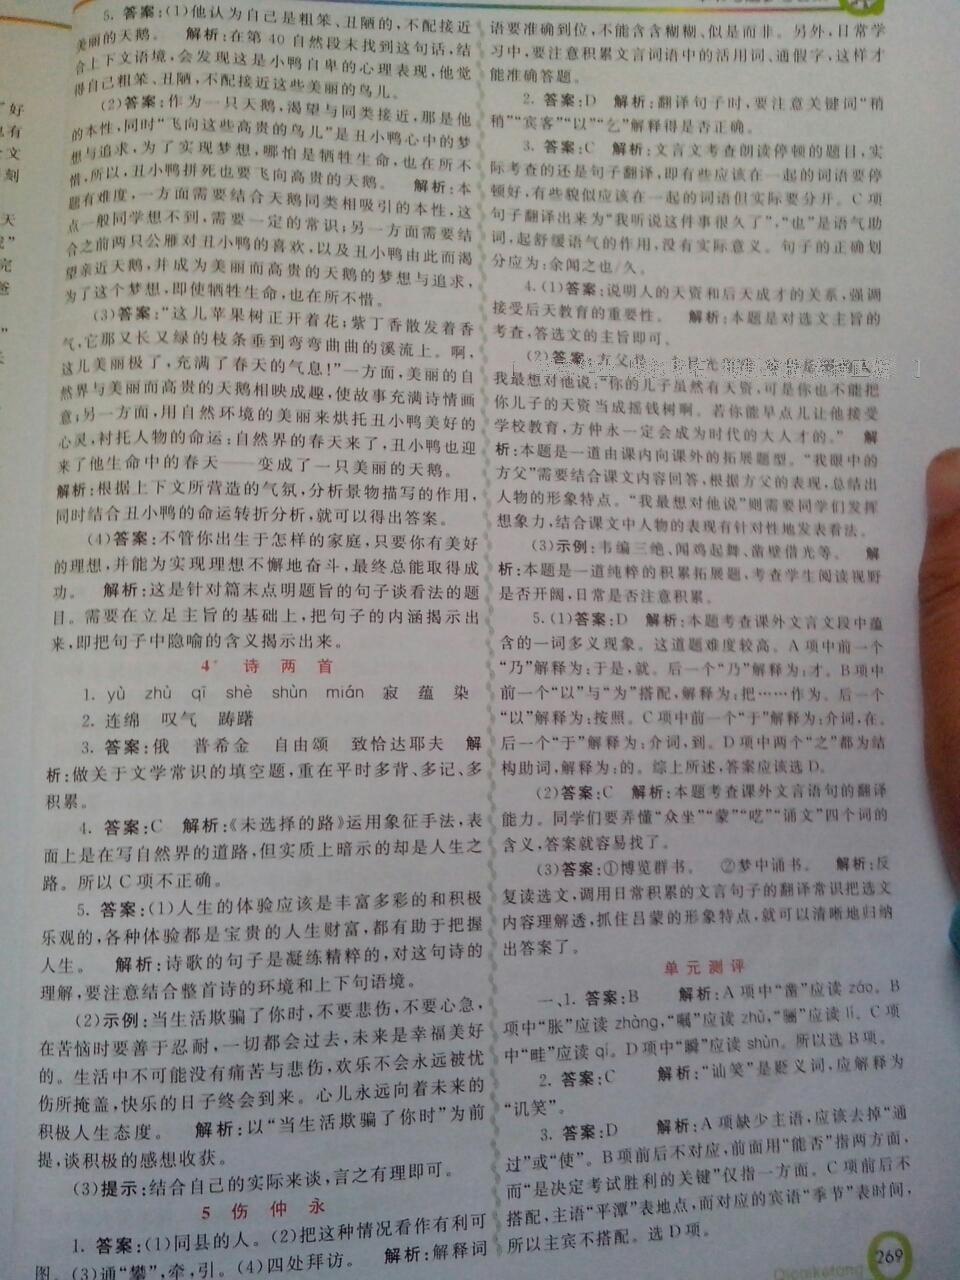 5. 答案:(1)他认为自己是粗笨、丑陋的,不配接近
美丽的天鹅。 解析:在第 40 自然段末找到这句话,结
合上下文语境,会发现这是小鸭自卑的心理表现,他觉
得自己粗笨、丑陋,不配接近这些美丽的鸟儿。
(2)答案:作为一只天鹅,渴望与同类接近,那是他
的本性,同时“飞向这些高贵的鸟儿”是丑小鸭心中的梦
想与追求,为了实现梦想,哪怕是牺牲生命,也在所不
惜,所以,丑小鸭拼死也要飞向高贵的天鹅。 解析:本
题有难度,一方面需要结合天鹅同类相吸引的本性,这
点一般同学想不到,需要一定的常识;另一方面需要结
合之前两只公雁对丑小鸭的喜欢,以及丑小鸭由此而渴
望亲近天鹅,并成为美丽而高贵的天鹅的梦想与追求,
为了这个梦想,即使牺牲生命,也在所不惜。
(3)答案:“这儿苹果树正开着花;紫丁香散发着香
气,它那又长又绿的枝条垂到弯弯曲曲的溪流上。啊,
这儿美丽极了,充满了春天的气息!”一方面,美丽的自
然界与美丽而高贵的天鹅相映成趣,使故事充满诗情画
意;另一方面,用自然环境的美丽来烘托丑小鸭美好的
心灵,衬托人物的命运:自然界的春天来了,丑小鸭也迎
来了他生命中的春天——变成了一只美丽的天鹅。
解析:根据上下文所营造的气氛,分析景物描写的作用,
同时结合丑小鸭的命运转折分析,就可以得出答案。
(4)答案:不管你出生于怎样的家庭,只要你有美好
的理想,并能为实现理想不懈地奋斗,最终总能取得成
功。 解析:这是针对篇末点明题旨的句子谈看法的题
目。需要在立足主旨的基础上,把句子的内涵揭示出
来,即把句子中隐喻的含义揭示出来。
4* 诗两首
1. yù zhù qī shè shùn mián 寂 蕴 染
2. 连绵 叹气 踌躇
3. 答案:俄 普希金 自由颂 致恰达耶夫 解
析:做关于文学常识的填空题,重在平时多背、多记、多
积累。
4. 答案:C 解析:《未选择的路》运用象征手法,表
面上是在写自然界的道路,但实质上暗示的却是人生之
路。所以 C 项不正确。
5. 答案:(1)人生的体验应该是丰富多彩的和积极
乐观的,各种体验都是宝贵的人生财富,都有助于把握
人生。 解析:诗歌的句子是凝练精粹的,对这句诗的
理解,要注意结合整首诗的环境和上下句语境。
(2)示例:当生活欺骗了你时,不要悲伤,不要心急,
在苦恼时要善于忍耐,一切都会过去,未来是幸福美好
的。生活中不可能没有痛苦与悲伤,欢乐不会永远被忧
伤所掩盖,快乐的日子终会到来。心儿永远向着未来的
积极人生态度。 解析:以“当生活欺骗了你时”为前
提,谈积极的感想收获。
(3)提示:结合自己的实际来谈,言之有理即可。
5 伤仲永
1. 答案:(1)同县的人。(2)把这种情况看作有利可
图。(3)通“攀”,牵,引。(4)四处拜访。 解析:解释词
语要准确到位,不能含含糊糊、似是而非。另外,日常学
习中,要注意积累文言词语中的活用词、通假字,这样才
能准确答题。
2. 答案:D 解析:翻译句子时,要注意关键词“稍
稍”“宾客”“以”“乞”解释得是否正确。
3. 答案:C 解析:文言文考查朗读停顿的题目,实
际考查的还是句子翻译,即有些应该在一起的词语要停
顿好,有些貌似应该在一起的词语但实际要分开。C 项
句子翻译出来为“我听说这件事很久了”,“也”是语气助
词,起舒缓语气的作用,没有实际意义。句子的正确划
分应为:余闻之也/久。
4. (1)答案:说明人的天资和后天成才的关系,强调
接受后天教育的重要性。 解析:本题是对选文主旨的
考查,答选文的主旨即可。
(2)答案:方父是
我最想对他说:“你的儿子虽然有天资,可是你也不能把
你儿子的天资当成摇钱树啊。若你能早点儿让他接受
学校教育,方仲永一定会成为时代的大人才的。” 解
析:本题是一道由课内向课外的拓展题型。“我眼中的
方父”需要结合课文内容回答,根据方父的表现,总结出
人物的形象特点。“我最想对他说”则需要同学们发挥
想象力,结合课文中人物的表现有针对性地发表看法。
(3)示例:韦编三绝、闻鸡起舞、凿壁借光等。 解
析:本题是一道纯粹的积累拓展题,考查学生阅读视野
是否开阔,日常是否注意积累。
5. (1)答案:D 解析:本题考查课外文言文段中蕴
含的一词多义现象。这道题难度较高。A 项中前一个
“乃”解释为:于是,就。后一个“乃”解释为:才。B 项中
前一个“以”与“为”搭配,解释为:把……作为。后一个
“以”解释为:按照。C 项中前一个“于”解释为:介词,在。
后一个“于”解释为:介词,到。D 项中两个“之”都为结
构助词,解释为:的。综上所述,答案应该选 D。
(2)答案:C 解析:本题考查课外文言语句的翻译
能力。同学们要弄懂“众坐”“蒙”“呓”“诵文”四个词的
含义,答案就容易找了。
(3)答案:①博览群书。 ②梦中诵书。 解析:反
复读选文,调用日常积累的文言句子的翻译常识把选文
内容理解透,抓住吕蒙的形象特点,就可以清晰地归纳
出答案了。
单元测评
一、1. 答案:B 解析:A 项中“凿”应读 záo。B
项中“胀”应读 zhàng,“嘱”应读 zhǔ,“骊”应读 lí。C 项
中“畦”应读 qí。D 项中“瞬”应读 shùn。所以选 B 项。
2. 答案:C 解析:“讪笑”是贬义词,应解释为
“讥笑”。
3. 答案:D 解析:A 项缺少主语,应该去掉“通
过”或“使”。B 项前后不对应,前面用“能否”指两方面,
而“是决定考试胜利的关键”仅指一方面。C 项前后不
搭配,主语“平潭”表地点,而对应的宾语“季节”表时间,
所以主宾不搭配。选 D 项。
269